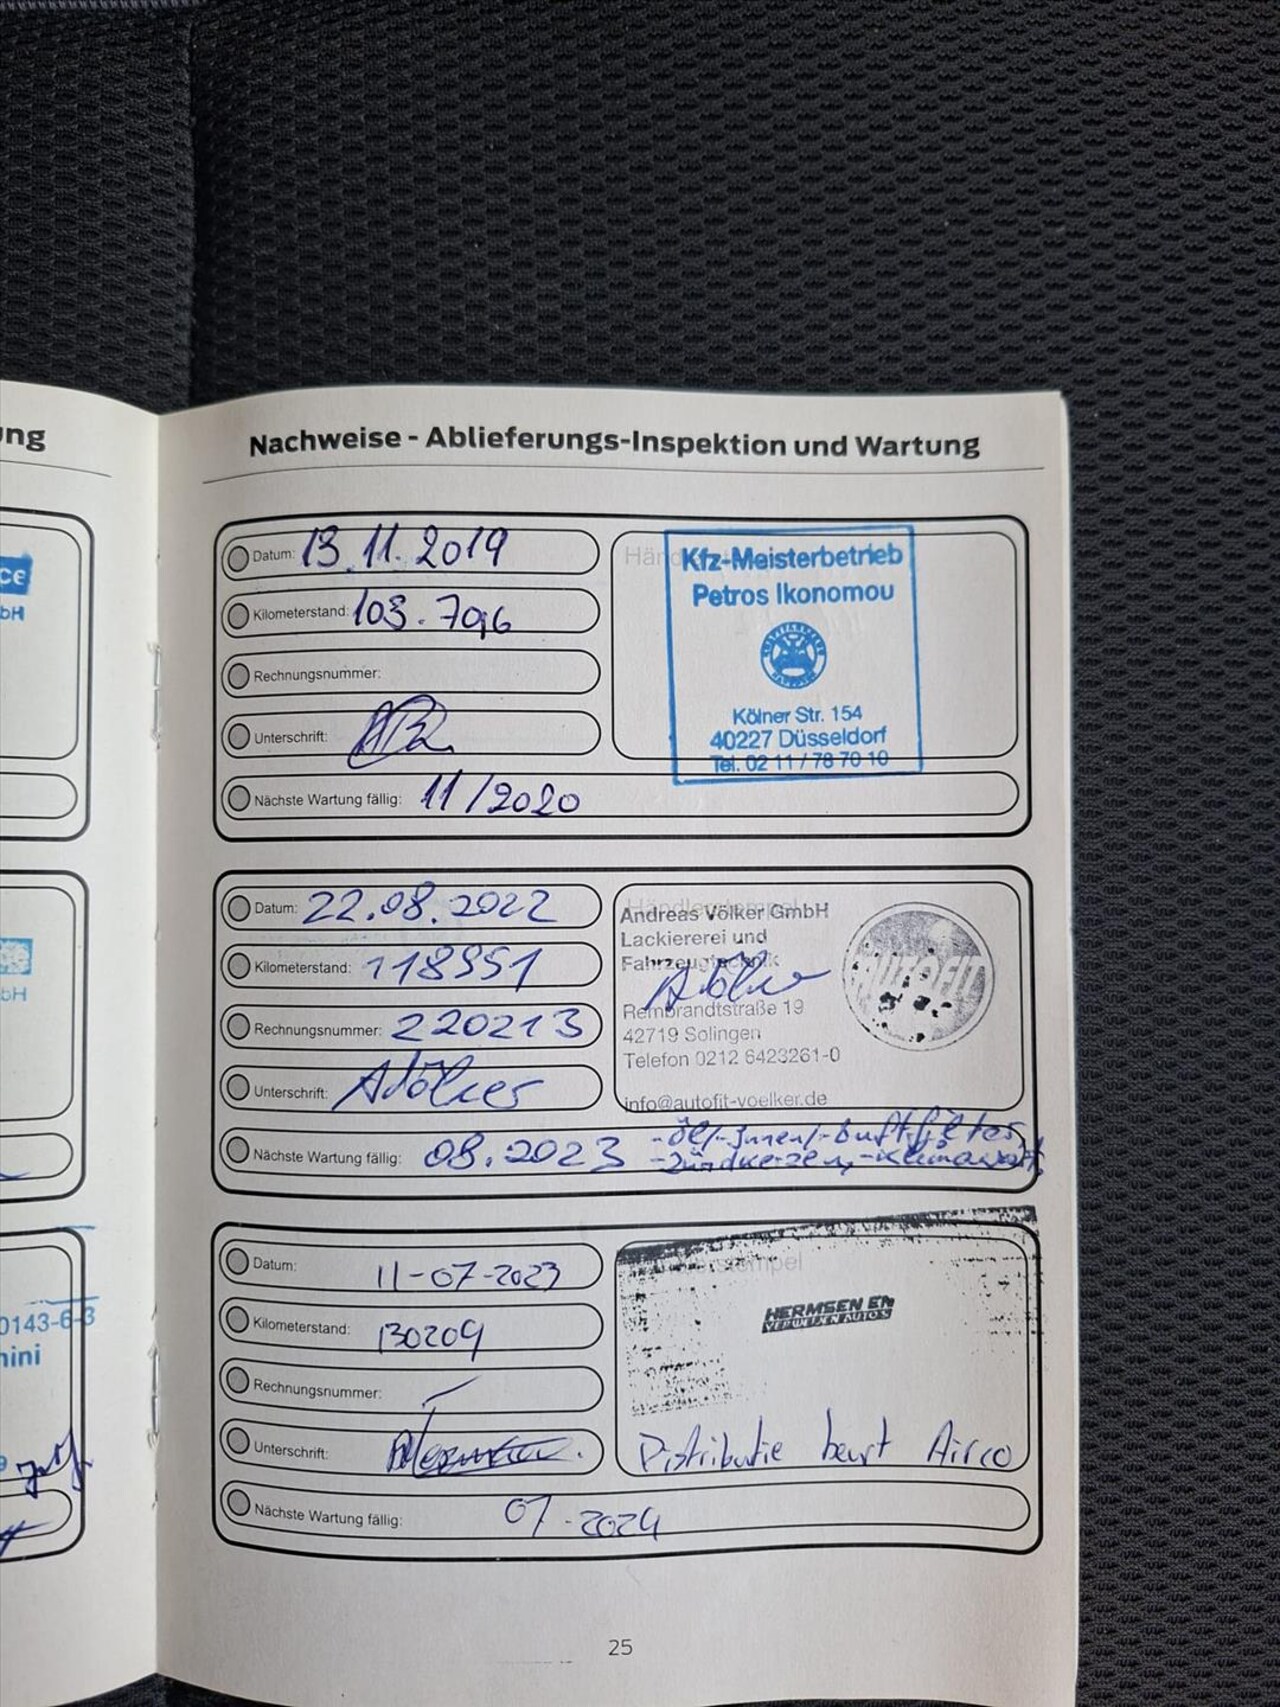 ung
Nachweise - Ablieferungs-Inspektion und Wartung
Datum: 13.11.2019
Kilometerstand: 103.706
Rechnungsnummer:
Unterschrift:
Nächste Wartung fällig: 11/2020
Kfz-Meisterbetrieb
Petros Ikonomou
Kölner Str. 154
40227 Düsseldorf
Tel. 02 11 / 78 70 10
Datum: 22.08.2022
Kilometerstand: 118951
Rechnungsnummer: 220213
Unterschrift: AVölker
Nächste Wartung fällig: 08.2023
Händlerstempel
Andreas Völker GmbH
Lackiererei und
Fahrzeugtechnik
AVölker
Rembrandtstraße 19
42719 Solingen
Telefon 0212 6423261-0
info@autofit-voelker.de
AUTOFIT
-Öl/-Innen/-Luftfilter,
-Zündkerzen, -Klimawart.
Datum: 11-07-2023
Kilometerstand: 130209
Rechnungsnummer: -
Unterschrift:
Nächste Wartung fällig: 07-2024
HERMSEN EN
VERWEIJEN AUTO'S
Distributie beurt Airco
ce
bH
bH
0143-6-3
nini
25